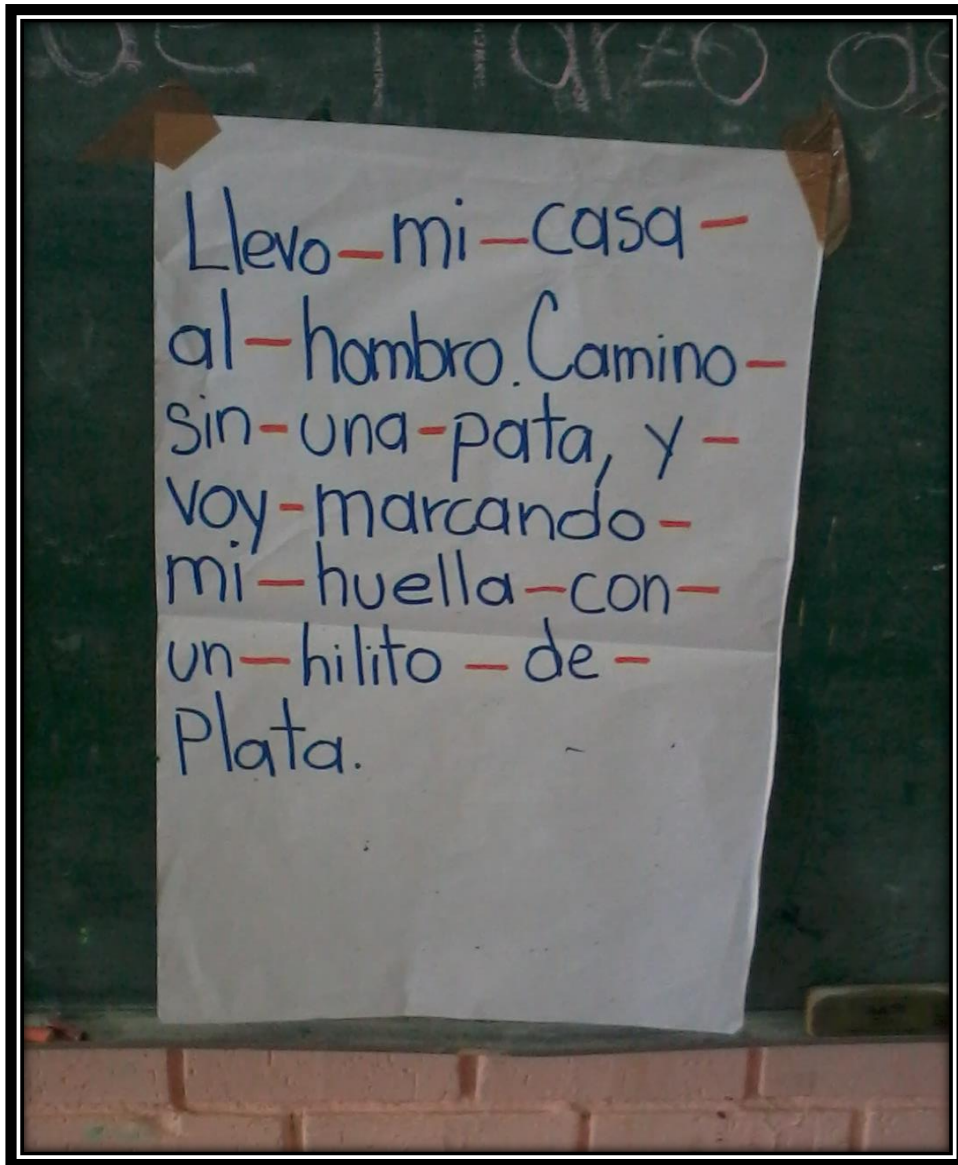 de Marzo de
Llevo-mi-casa-
al-hombro. Camino-
sin-una-pata, y-
voy-marcando-
mi-huella-con-
un-hilito-de-
Plata.